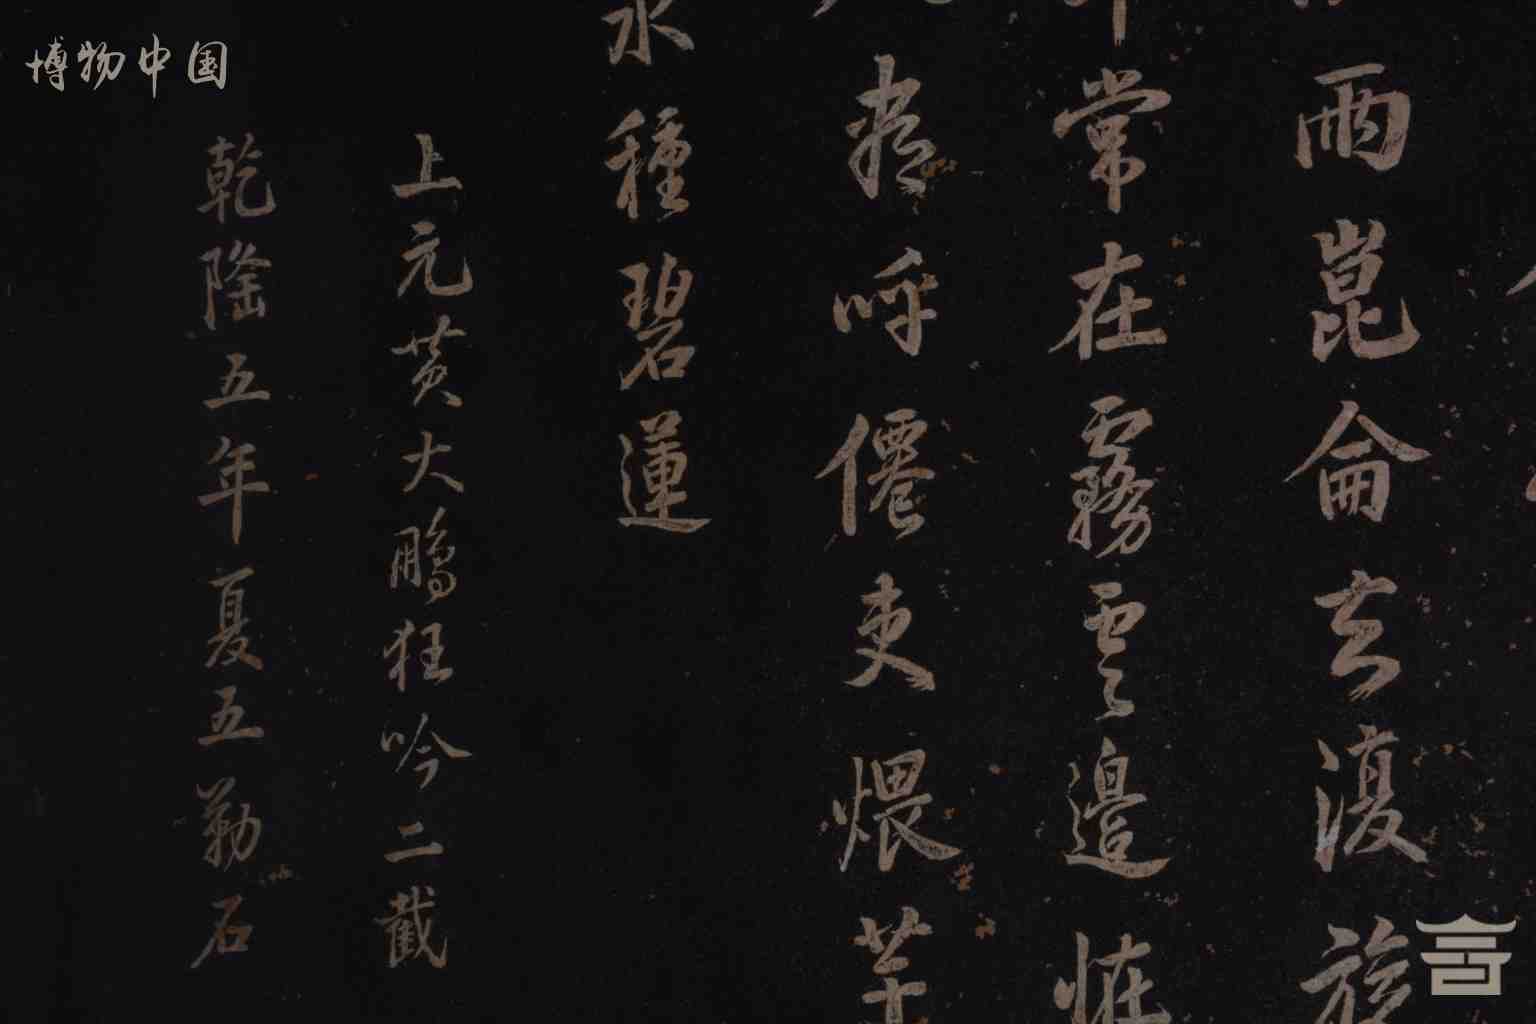 博物中国
雨崑崙去復旋
常在霧雲邉恠
呼僊吏煨芋
水種碧蓮
上元黄大鵬狂吟二截
乾隆五年夏五勒石